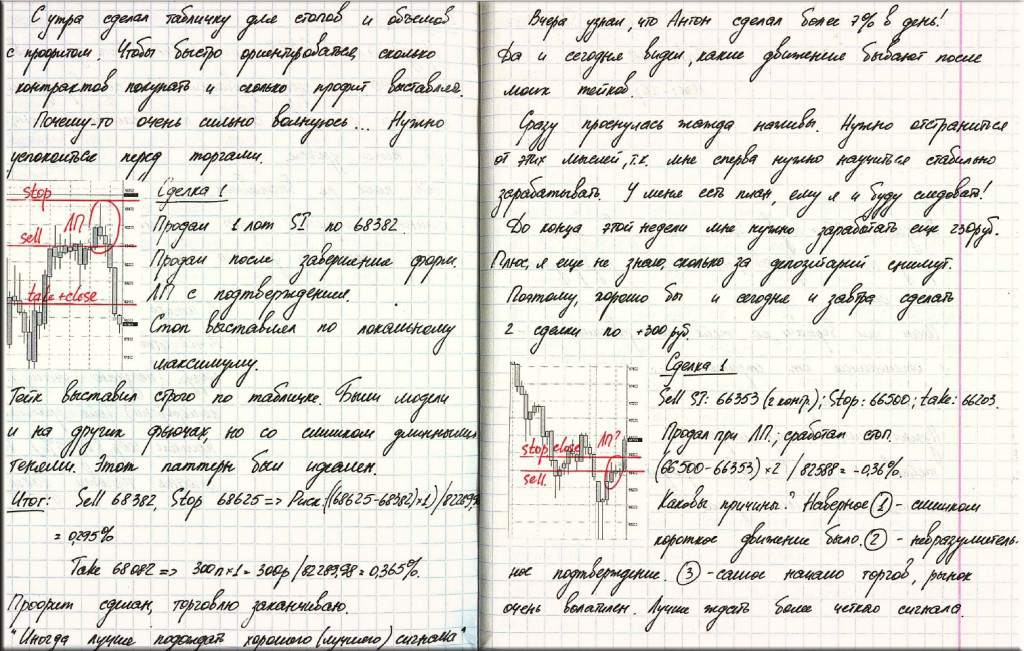 С утра сделал табличку для стопов и объемов
с профитом. Чтобы быстро ориентироваться, сколько
контрактов покупать и сколько профит выставлял.
Почему-то очень сильно волнуюсь... Нужно
успокоиться перед торгами.
stop
ЛП!
sell
take+close
Сделка 1
Продал 1 лот SI по 68382.
Продал после завершения форм.
ЛП с подтверждением.
Стоп выставлял по локальному
максимуму.
Тейк выставил строго по табличке. Были модели
и на других фьючах, но со слишком длинными
тенями. Этот паттерн был идеален.
Итог: Sell 68382, Stop 68625 => Риск: ((68625-68382)×1)/82289,98
= 0,295%
Take 68082 => 300п×1 = 300р/82289,98 = 0,365%.
Профит сделан, торговлю заканчиваю.
"Иногда лучше подождать хорошего (лучшего) сигнала"
Вчера узнал, что Антон сделал более 7% в день!
Да и сегодня видел, какие движения бывают после
моих тейков.
Сразу проснулась жажда наживы. Нужно отстраниться
от этих мыслей, т.к. мне сперва нужно научиться стабильно
зарабатывать. У меня есть план, ему я и буду следовать!
До конца этой недели мне нужно заработать еще 230руб.
Плюс, я еще не знаю, сколько за депозитарий снимут.
Поэтому, хорошо бы и сегодня и завтра сделать
2 сделки по +300руб.
stop close
ЛП?
sell.
Сделка 1
Sell SI: 66353 (2 контр.); Stop: 66500; take: 66203.
Продал при ЛП.; сработал стоп.
(66500-66353)×2 / 82588 = -0,36%.
Каковы причины? Наверное ① - слишком
короткое движение было. ② - невразумитель-
ное подтверждение. ③ - самое начало торгов, рынок
очень волатилен. Лучше ждать более четкого сигнала.